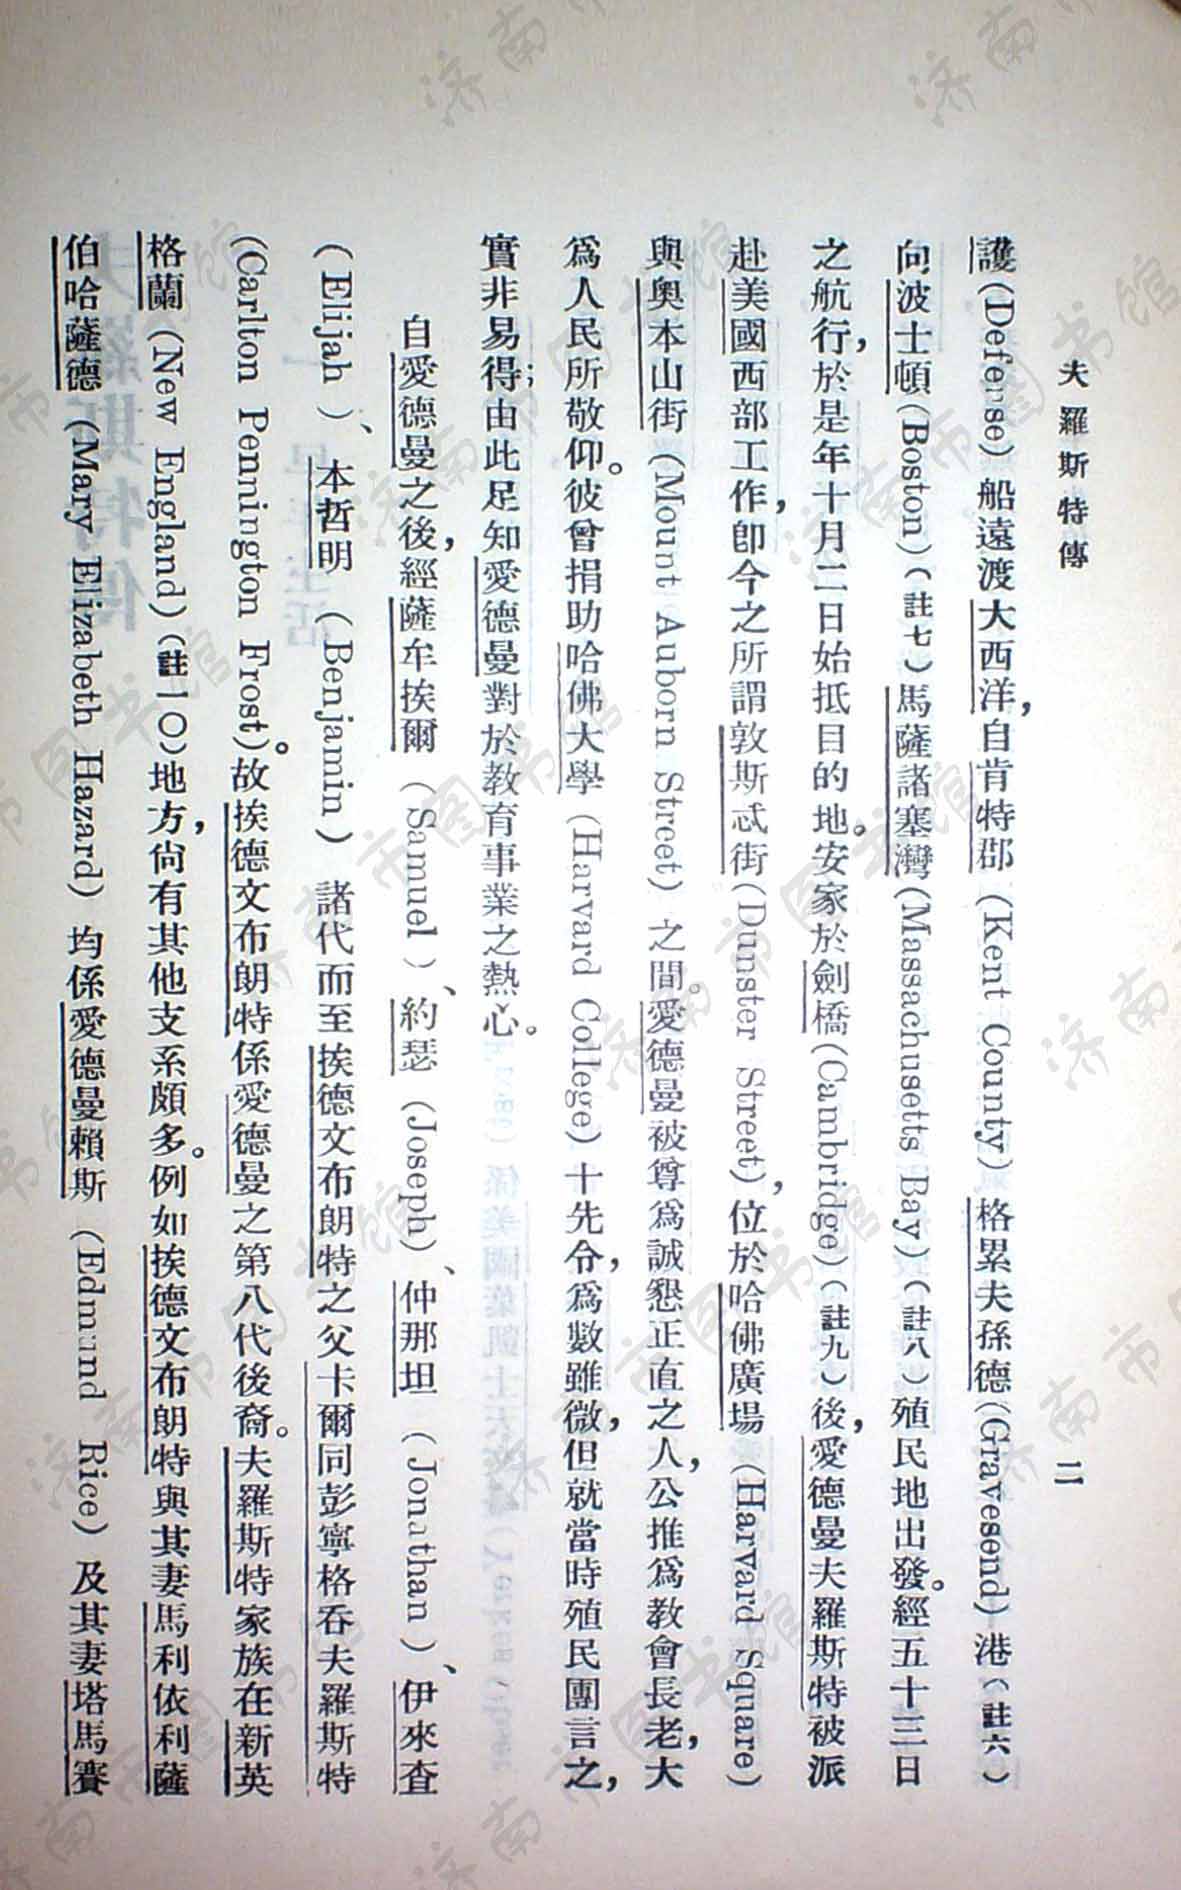 夫羅斯特傳
二
護(Defense)船遠渡大西洋，自肯特郡(Kent County)格累夫孫德(Gravesend)港(註六)
向波士頓(Boston)(註七)馬薩諸塞灣(Massachusetts Bay)(註八)殖民地出發。經五十三日
之航行，於是年十月二日始抵目的地。安家於劍橋(Cambridge)(註九)後，愛德曼夫羅斯特被派
赴美國西部工作，卽今之所謂敦斯忒街(Dunster Street)，位於哈佛廣場(Harvard Square)
與奧本山街(Mount Auborn Street)之間。愛德曼被尊爲誠懇正直之人，公推爲教會長老，大
爲人民所敬仰。彼曾捐助哈佛大學(Harvard College)十先令，爲數雖微，但就當時殖民團言之，
實非易得；由此足知愛德曼對於教育事業之熱心。
自愛德曼之後，經薩牟挨爾(Samuel)、約瑟(Joseph)、仲那坦(Jonathan)、伊來查
(Elijah)、本哲明(Benjamin)諸代而至挨德文布朗特之父卡爾同彭寧格吞夫羅斯特
(Carlton Pennington Frost)。故挨德文布朗特係愛德曼之第八代後裔。夫羅斯特家族在新英
格蘭(New England)(註一〇)地方，尙有其他支系頗多。例如挨德文布朗特與其妻馬利依利薩
伯哈薩德(Mary Elizabeth Hazard)均係愛德曼賴斯(Edmund Rice)及其妻塔馬賽
济南市图书馆